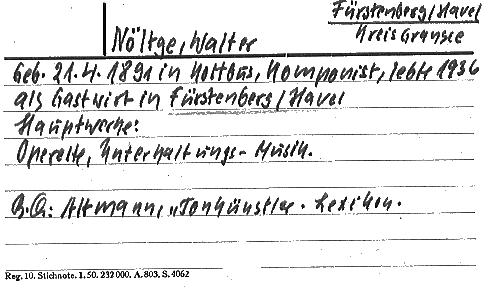 Fürstenberg/Havel
Kreis Gransee
Nöltge, Walter
Geb. 21.4.1891 in Kottbus, Komponist, lebte 1936
als Gastwirt in Fürstenberg/Havel
Hauptwerke:
Operette, Unterhaltungs-Musik.
B.Q.: Altmann, „Tonkünstler-Lexikon.
Reg. 10. Stichnote. 1, 50. 232 000. A. 803. S. 4062